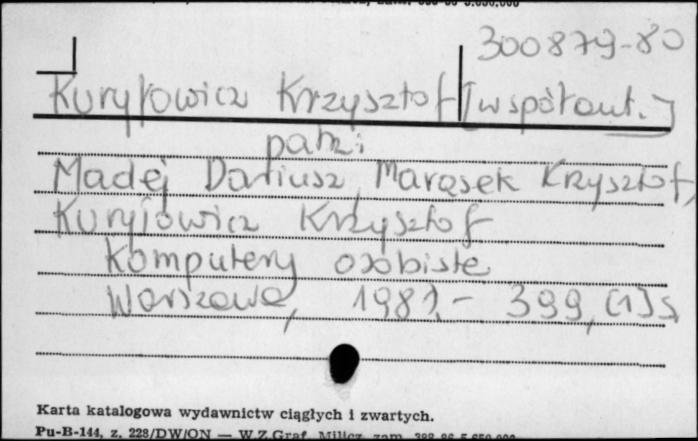 300879-80
Kuryłowicz Krzysztof [współaut.]
patrz:
Madej Dariusz, Marasek Krzysztof,
Kuryłowicz Krzysztof
Komputery osobiste
Warszawa, 1987.- 399, [1] s
Karta katalogowa wydawnictw ciągłych i zwartych.
Pu-B-144, z. 228/DW/ON — W.Z.Graf. Milicz, zam.